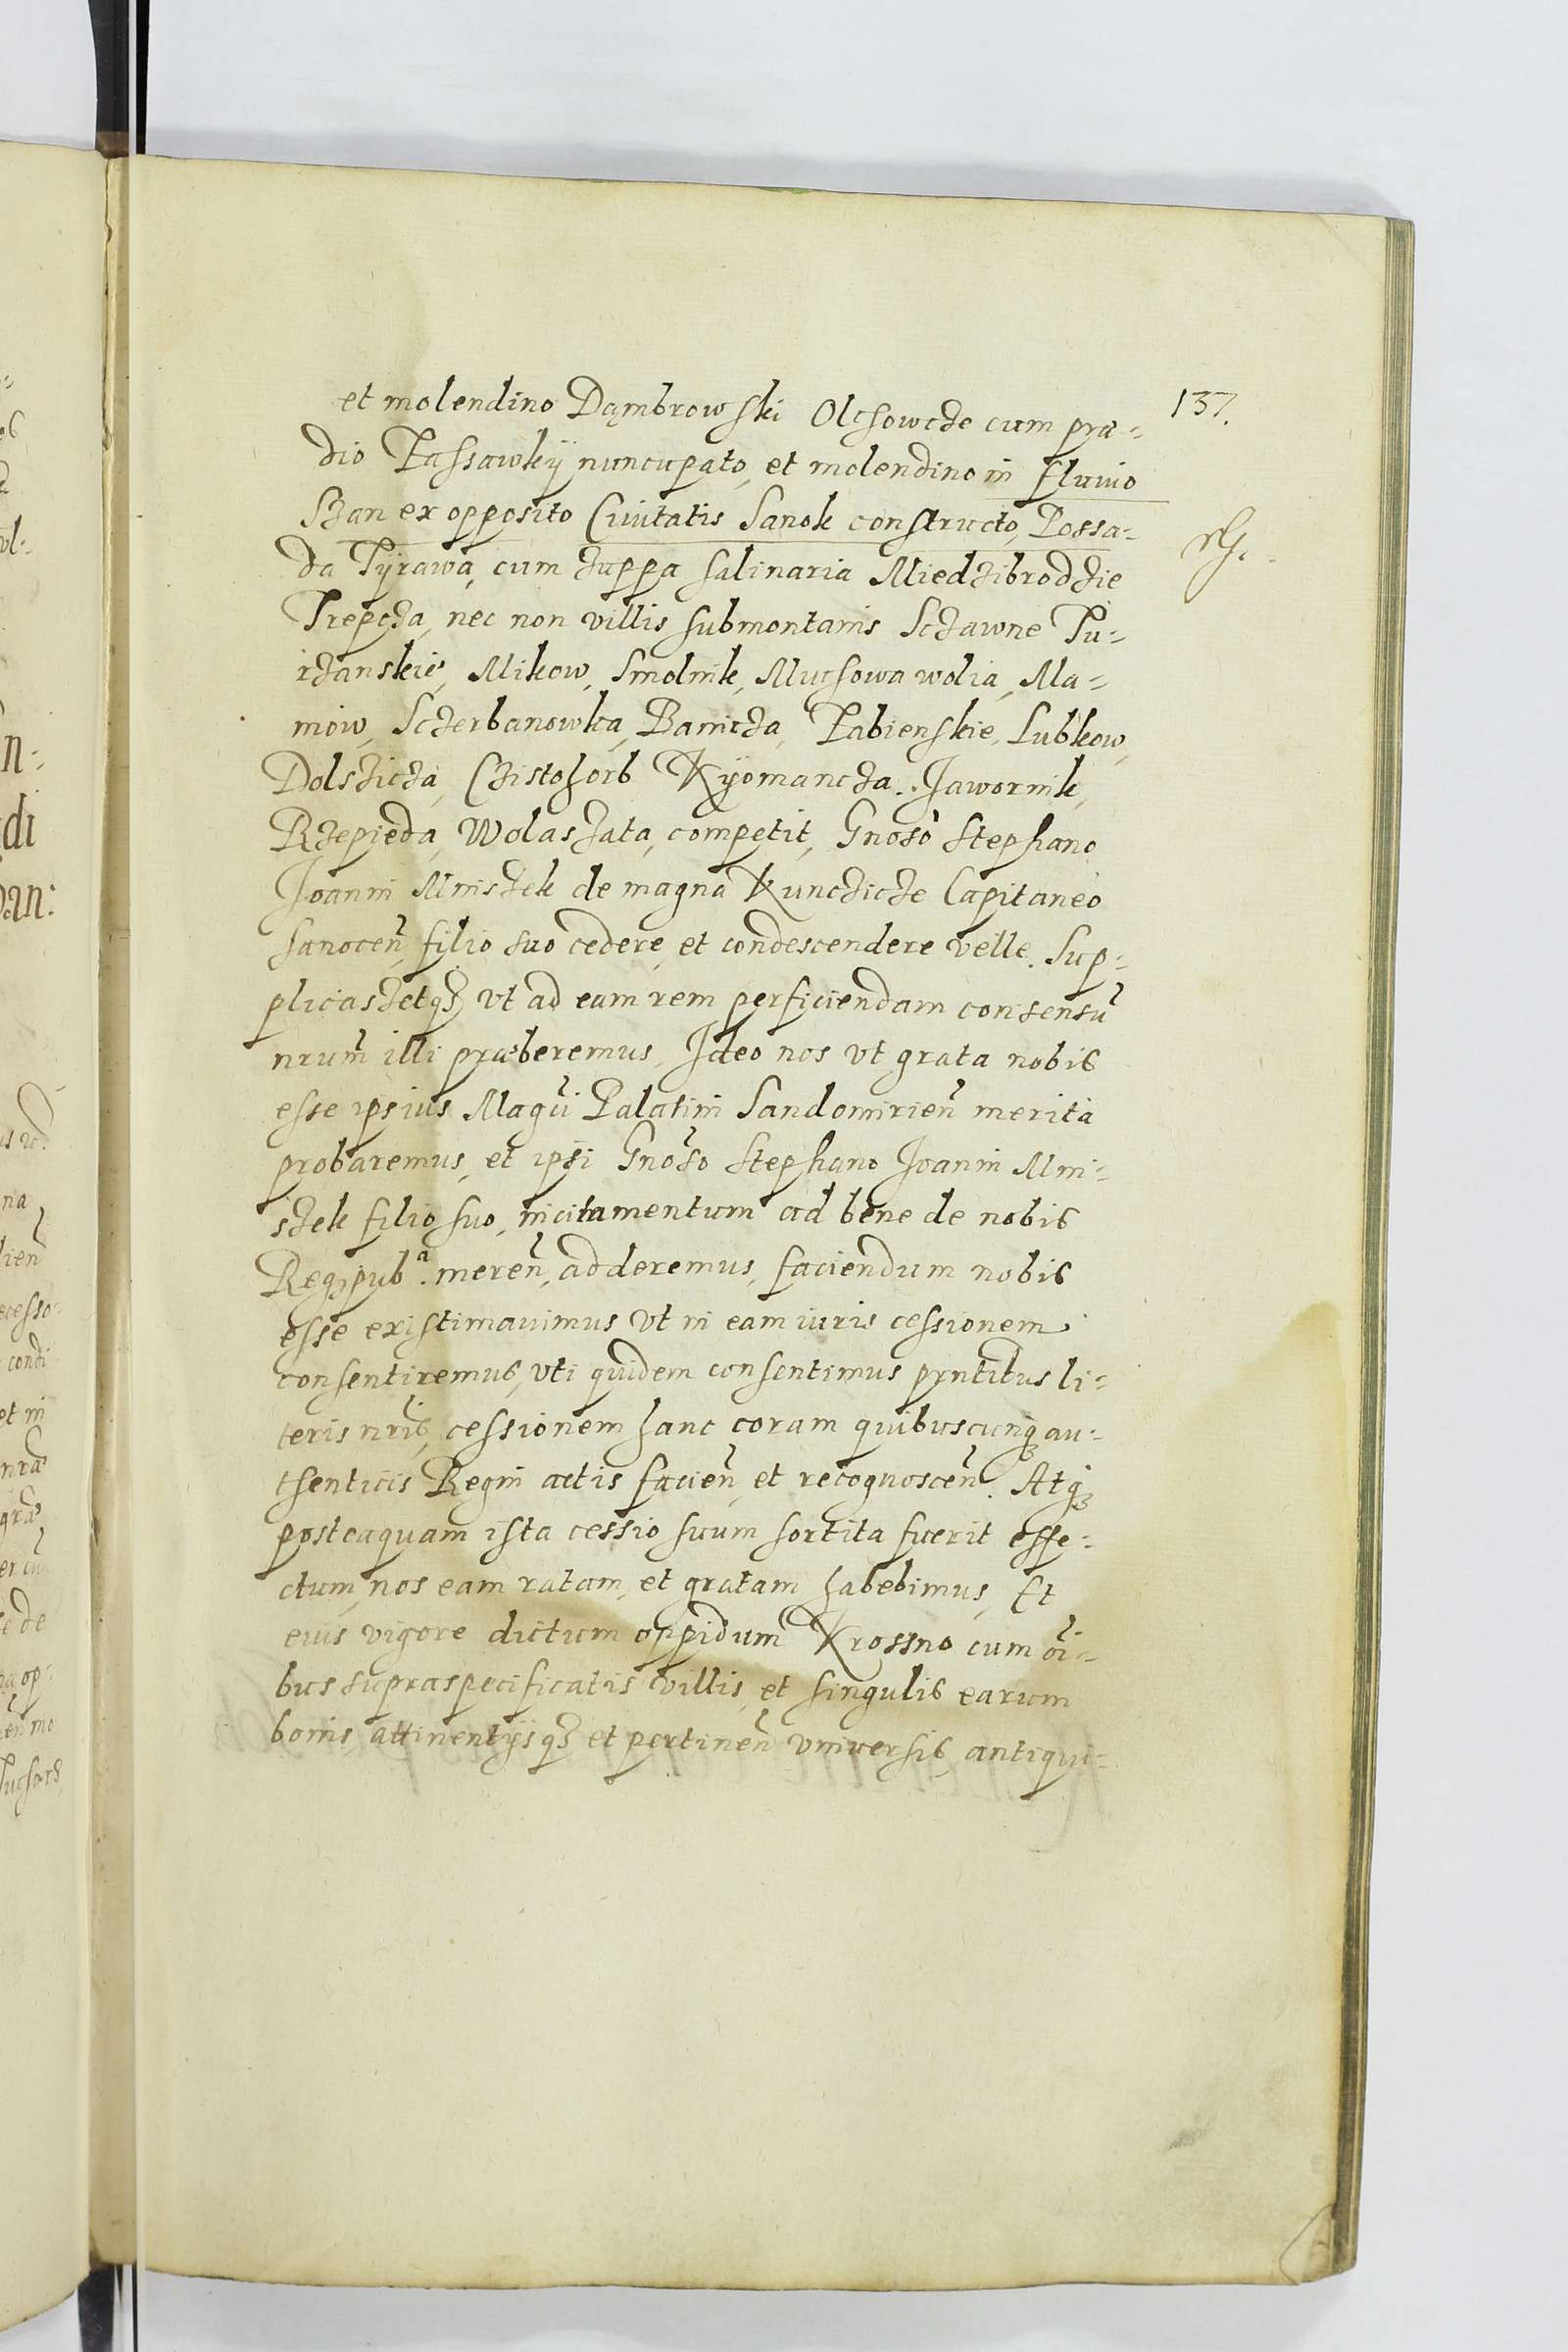 et molendino Dąmbrowski Olchowcze cum præ-
137.
dio Lassawkÿ nuncupato, et molendino in fluuio
Szan ex opposito Ciuitatis Sanok constructo, Possa-
da Tÿrawa, cum zuppa salinaria Miedzibrodzie
Trepcza, nec non villis submontanis Sczawne Tu-
rzanskie, Mikow, Smolnik, Muchowa wolia, Ma-
niow, Sczerbanowka, Banicza, Łabienskie, Lubkow,
Dolszicza, Czistohorb Kÿomancza. Jawornik,
Rzepieda, Wolaszata, competit, Gnoso Stephano
Joanni Mniszek de magna Kunczicze Capitaneo
Sanocen̄ filio suo cedere, et condescendere velle. Sup-
plicassetqȝ vt ad eam rem perficiendam consensū
nrum̄ illi præberemus, Ideo nos vt grata nobis
esse ipsius Magci Palatini Sandomirien̄ merita
probaremus, et ipsi Gnoso Stephano Joanni Mni-
szek filio suo, incitamentum ad bene de nobis
Reqȝpubᵃ. meren̄, adderemus, faciendum nobis
esse existimauimus vt in eam iuris cessionem
consentiremus, vti quidem consentimus pȓntibus li-
teris nr̄is, cessionem hanc coram quibuscunqȝ au-
thenticis Regni actis facien̄, et recognoscen̄. Atqȝ
posteaquam ista cessio suum sortita fuerit effe-
ctum, nos eam ratam, et gratam habebimus, Et
eius vigore dictum oppidum Krossno cum oī-
bus supraspecificatis villis, et singulis earum
bonis, attinentijsqȝ et pertinen̄ vniuersis, antiqui-